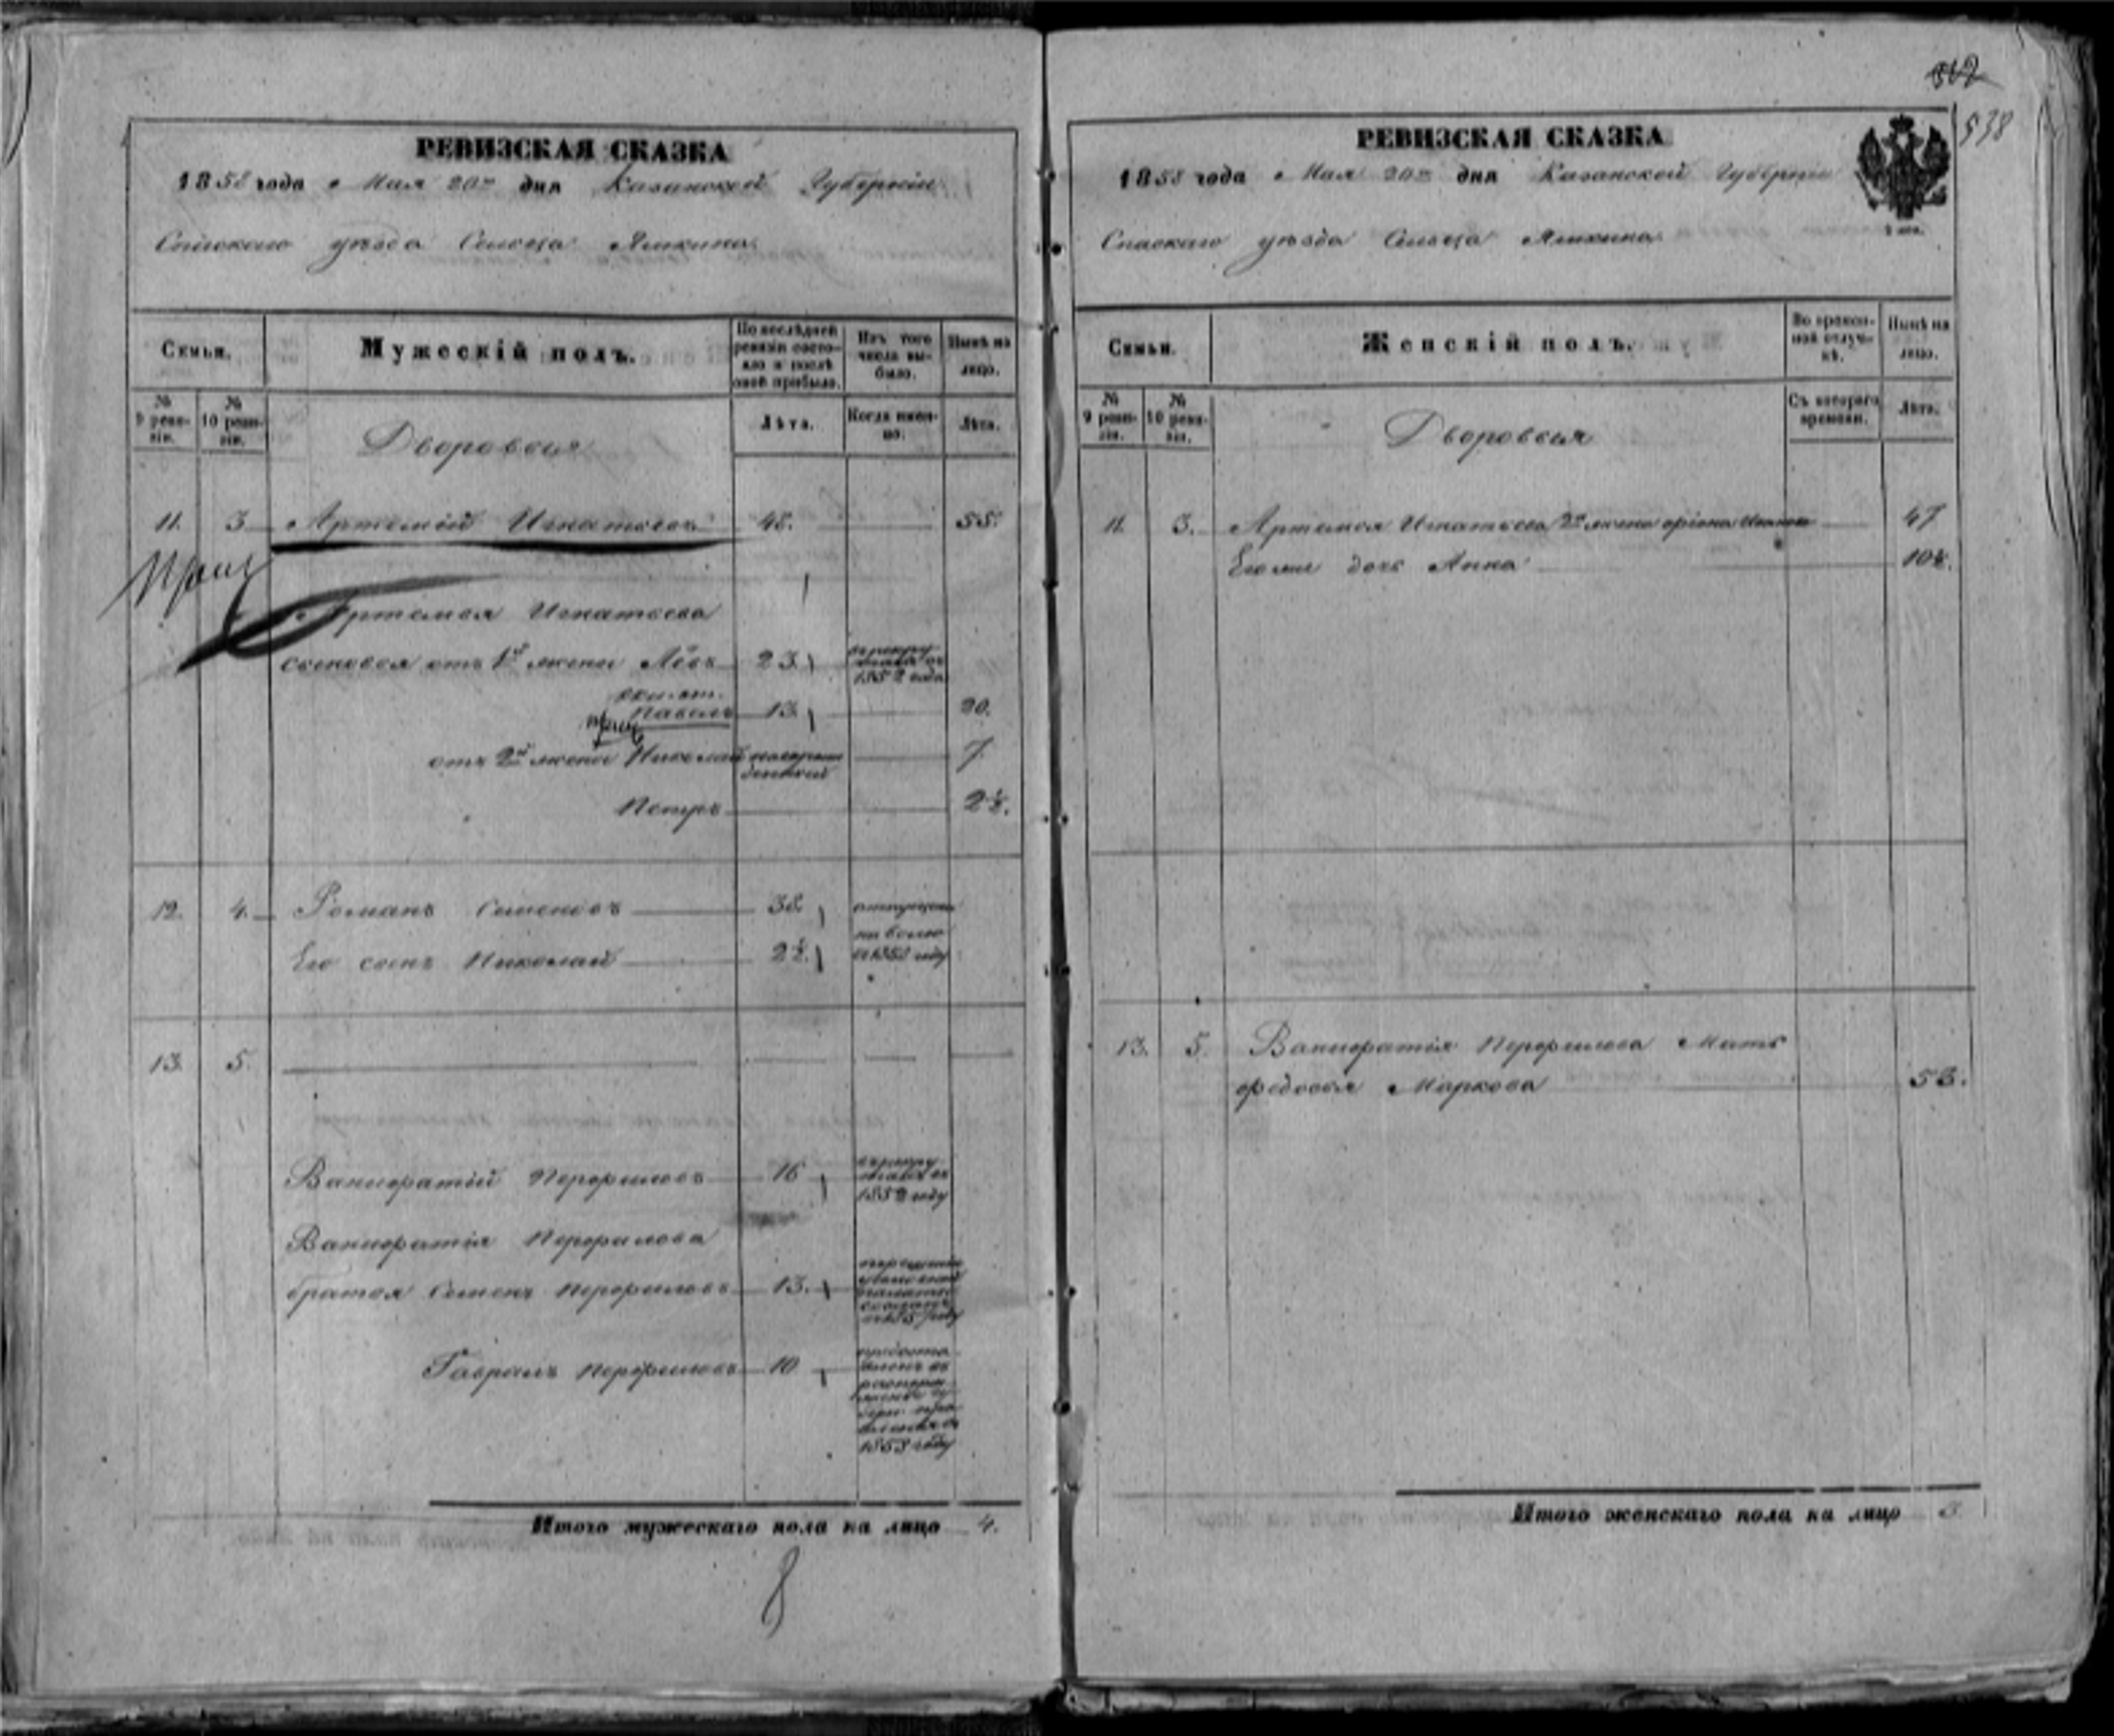 РЕВИЗСКАЯ СКАЗКА
1858 года Мая 20го дня Казанской Губернiи
Спаскаго уѣзда Сельца Ямкина
Семьи.
Мужескiй полъ.
По послѣдней ревизiи состояло и послѣ оной прибыло.
Изъ того числа выбыло.
Нынѣ на лицо.
№ 9 ревизiи.
№ 10 ревизiи.
Дворовыя
Лѣта.
Когда именно.
Лѣта.
11. 3 Артемiй Игнатьевъ 48. 55.
Артемья Игнатьева
сыновья отъ 1й жены Левъ 23. въ рекруты въ 1852 года
Павелъ 13. 20.
отъ 2й жены Николай 7.
Петръ 2½.
12. 4. Романъ Семеновъ 38. отпущены
Его сынъ Николай 2½. на волю въ 1852 году
13. 5.
Ванифатiй Перфиловъ 16 1852 году
Ванифатiя Перфилова
братья Семенъ Перфиловъ 13.
Гаврилъ Перфиловъ 10 1853 году
Итого мужескаго пола на лицо 4.
8
538
РЕВИЗСКАЯ СКАЗКА
1858 года Мая 20го дня Казанской Губернiи
Спаскаго уѣзда Сельца Ямкина
Семьи.
Женскiй полъ.
Во временной отлучкѣ.
Нынѣ на лицо.
№ 9 ревизiи.
№ 10 ревизiи.
Дворовыя
Съ котораго времени.
Лѣта.
11. 3. Артемья Игнатьева 2я жена 47
Его же дочь Анна
13. 5. Ванифатiя Перфилова Мать
Федосья Маркова 53.
Итого женскаго пола на лицо 3.